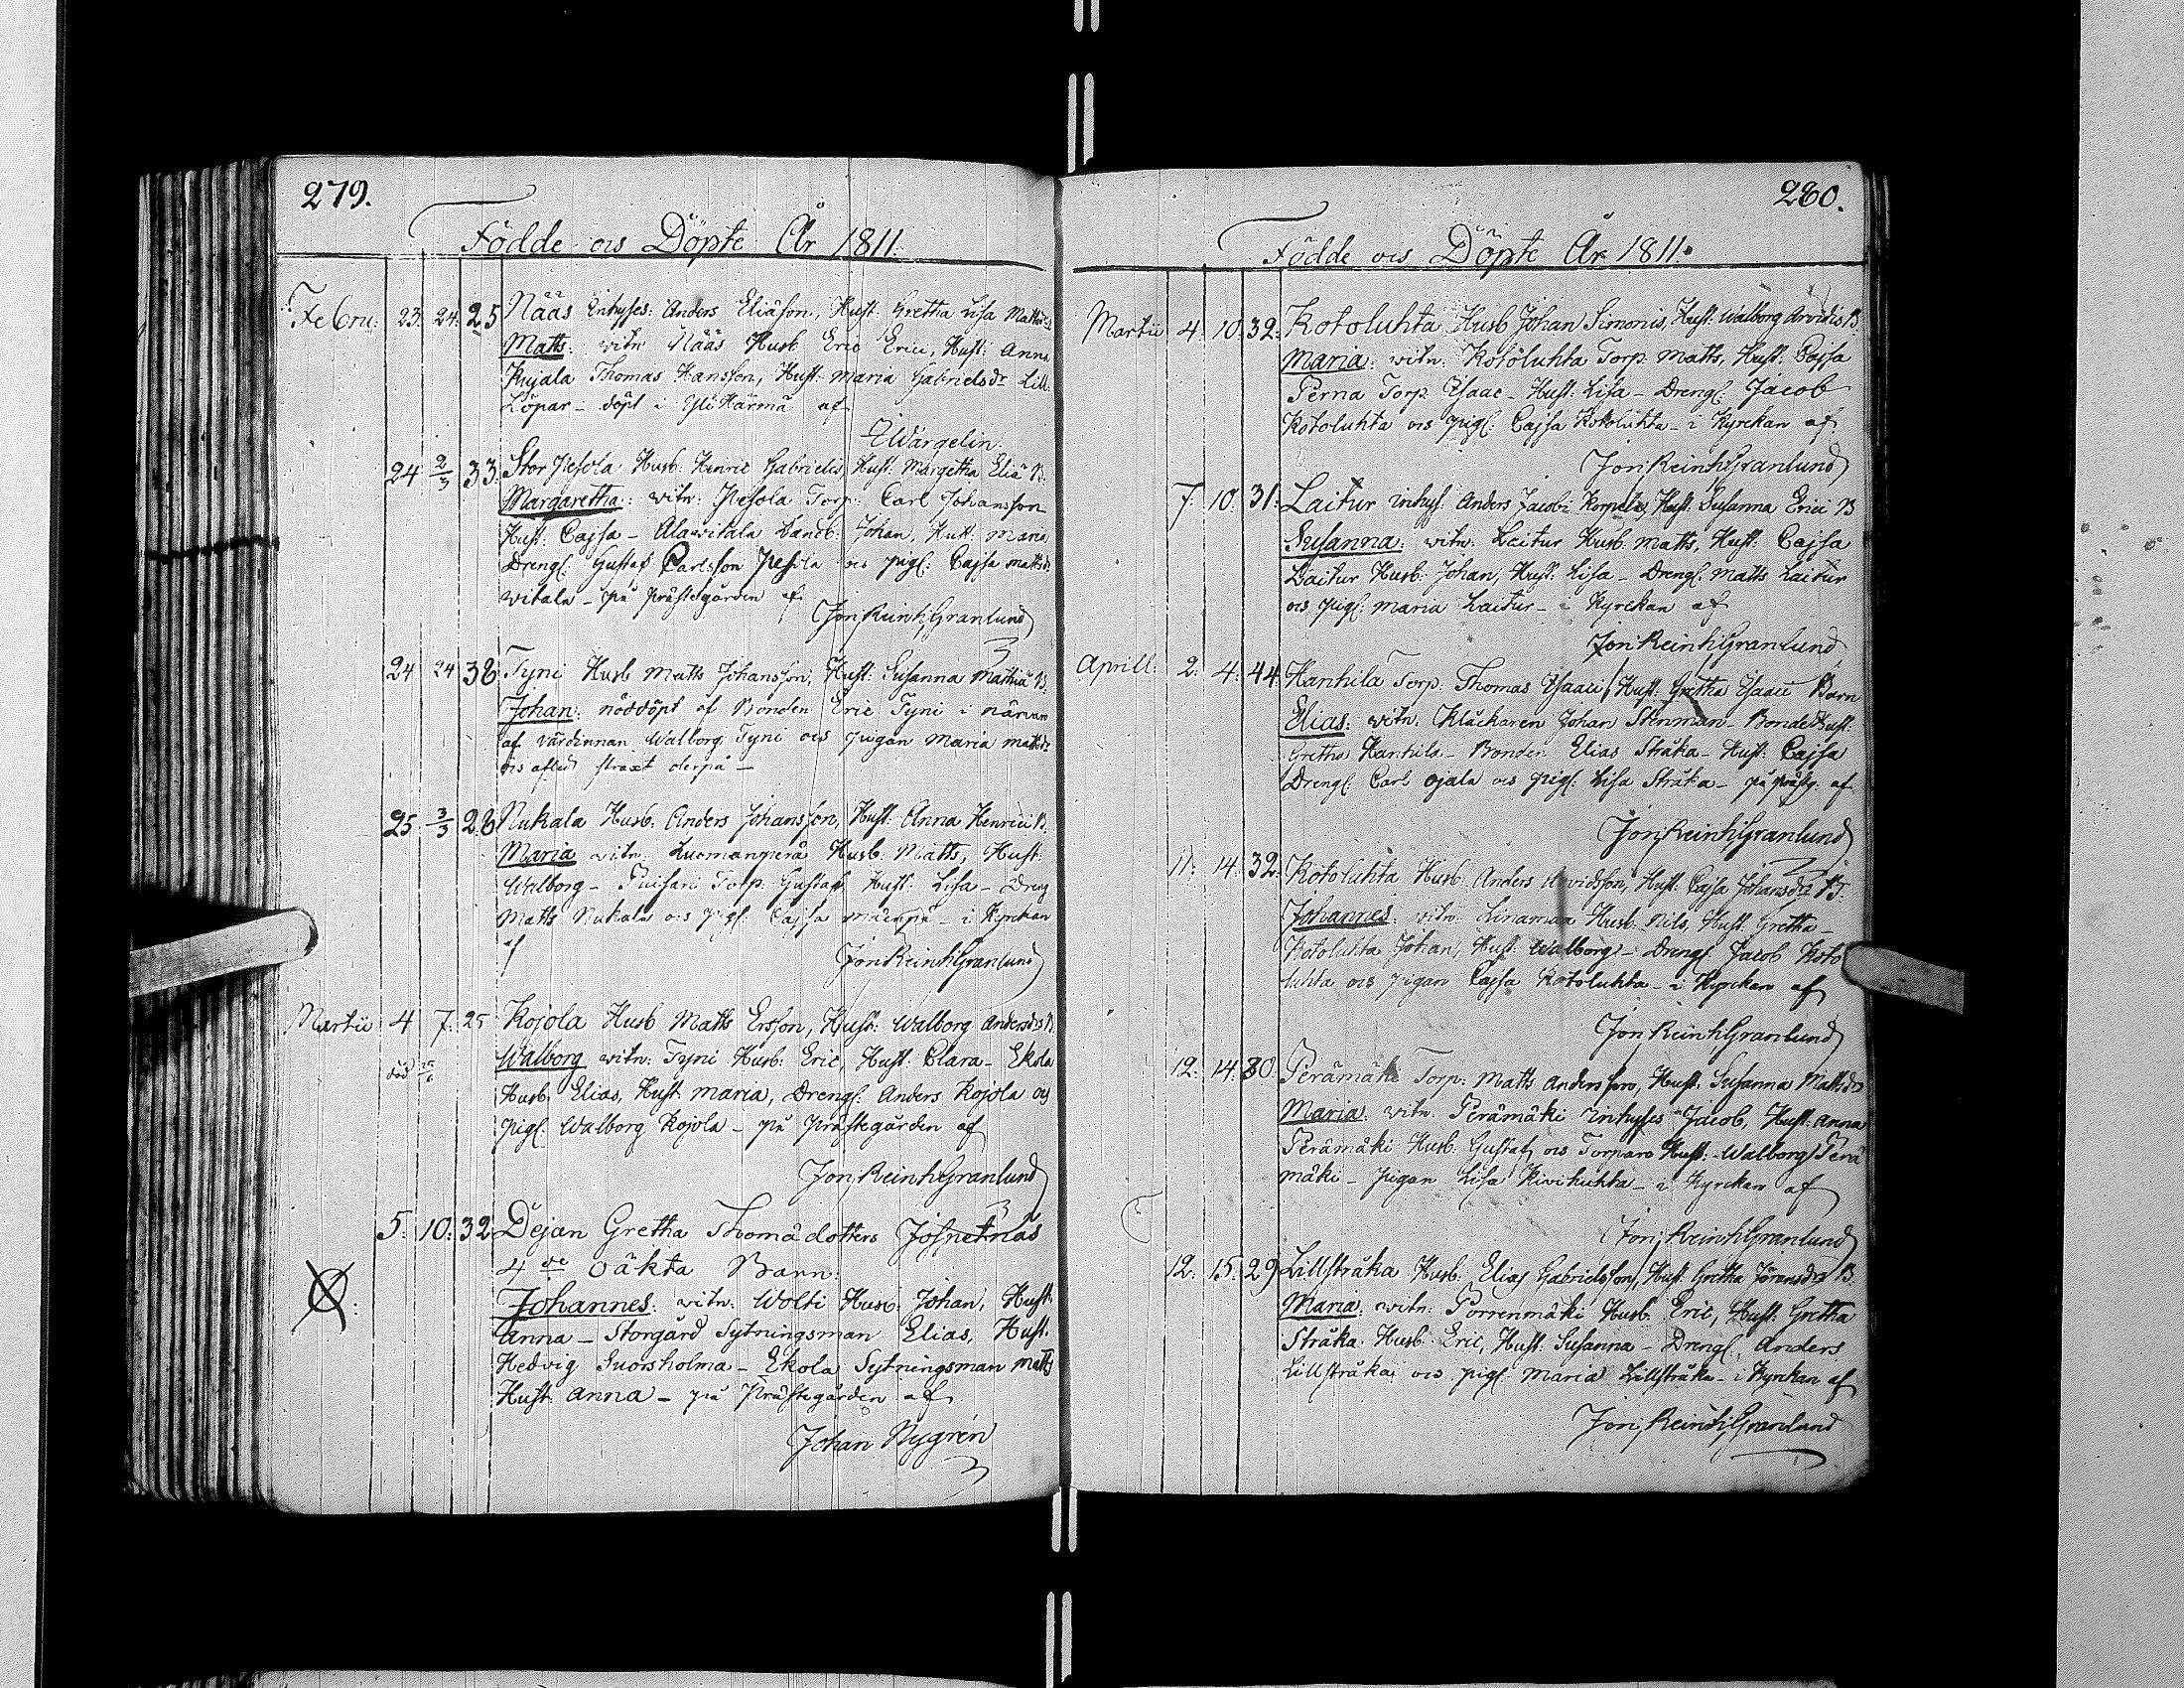 279.
Födde ocs Döpte År 1811.
Febru: 23. 24. 25 Nääs Inhyses: Anders Eliäson, Hust: Gretha Lisa Matts
Matts: witn Nääs Husb Eric Erici, Hust: Anna
Kujala Thomas Hansson, Hust: Maria Gabrielsdr Lill:
Löpar - döpt i Yli Härmä af
Wargelin.
24 2/3 33. Stor Pesola Husb: Henric Gabrielis, Hust: Margetha Eliæ B.
Margaretha: witn: Pesola Torp: Carl Johansson
Hust: Cajsa - Alawitala Landb: Johan, Hust: Maria
Drengs: Gustaf Carlsson Pesola ocs pigs: Cajsa Mattsdr
Witala - på Prästegården af
Jon; Reinh; Granlund
24 24 38 Tyni Husb Matts Johansson, Hust: Susanna Mathiæ B.
Johan: nöddöpt af Bonden Eric Tyni i närvaro
af värdinnan Walborg Tyni ocs pigan Maria Mattsdr
ocs afled straxt derpå -
25 3/3 28 Nukala Husb: Anders Johansson, Hust: Anna Henrici B.
Maria witn: Luomanperä Husb: Matts, Hust:
Walborg - Puisari Torp: Gustaf, Hust: Lisa - Dreng
Matts Nukala ocs pigs: Cajsa - i Kyrckan
af
Jon; Reinh; Granlund
Martii 4 7. 25 Kojola Husb Matts Ersson, Hust: Walborg Andersdr B.
död Walborg witn: Tyni Husb: Eric, Hust: Clara - Ekola
Husb: Elias, Hust: Maria, Drengs: Anders Kojola ocs
pigs: Walborg Kojola - på Prästegården af
Jon; Reinh; Granlund
5. 10. 32 Dejan Gretha Thomædotters Josnetnäs
4de oäkta Barn:
Johannes: witn: Wolti Husb: Johan, Hust:
Anna - Storgård Sytningsman Elias, Hust:
Hedvig Suorsholma - Ekola Sytningsman Matts
Hust: Anna - på Prästegården af
Johan Nygrén
280.
Födde ocs Döpte År 1811.
Martii 4. 10. 32. Kotoluhta Husb Johan Simonis, Hust: Walborg Arvidis B.
Maria: witn: Kotoluhta Torp: Matts, Hust: Cajsa
Perna Torp: Ysaac - Hust: Lisa - Drengs: Jacob
Kotoluhta ocs pigs: Cajsa Kotoluhta - i Kyrckan af
Jon; Reinh; Granlund
7. 10. 31. Laitur inhys: Anders Jacobi Korpela, Hust: Susanna Erici B
Susanna: witn: Laitur Husb: Matts, Hust: Cajsa
Laitur Husb: Johan, Hust: Lisa - Drengs: Matts Laitur
ocs pigs: Maria Laitur - i Kyrckan af
Jon; Reinh; Granlund
Aprill: 2. 4. 44 Hanhila Torp: Thomas Ysaaci, Hust: Gretha Ysaaci Barn
Elias: witn: Klåckaren Johan Stenman - Bonde Hust:
Gretha Hanhila - Bonden Elias Stråka - Hust: Cajsa
Drengs: Carl Ojala ocs pigs: Lisa Stråka - på Prästg: af
Jon; Reinh; Granlund
11. 14. 32. Kotoluhta Husb: Anders Arvidsson, Hust: Cajsa Johansdr B.
Johannes: witn: Linamaa Husb: Nils, Hust: Gretha -
Kotoluhta Johan, Hust: Walborg - Drengs: Jacob Koto
luhta ocs pigan Cajsa Kotoluhta - i Kyrckan af
Jon; Reinh; Granlund
12. 14. 30. Perämäki Torp: Matts Andersson, Hust: Susanna Mattsdr
Maria: witn: Perämäki Inhyses Jacob, Hust: Anna
Perämäki Husb: Gustaf, ocs Torpare Hust: Walborg Perä
mäki - pigan Lisa Kivikuhta - i Kyrckan af
Jon; Reinh; Granlund
12. 15. 29 Lillstråka Husb: Elias Gabrielsson, Hust: Gretha Jöransdr B.
Maria: witn: Porrenmäki Husb: Eric, Hust: Gretha
Stråka Husb: Eric, Hust: Susanna - Drengs: Anders
Lillstråka, ocs pigs: Maria Lillstråka - i Kyrckan af
Jon; Reinh; Granlund